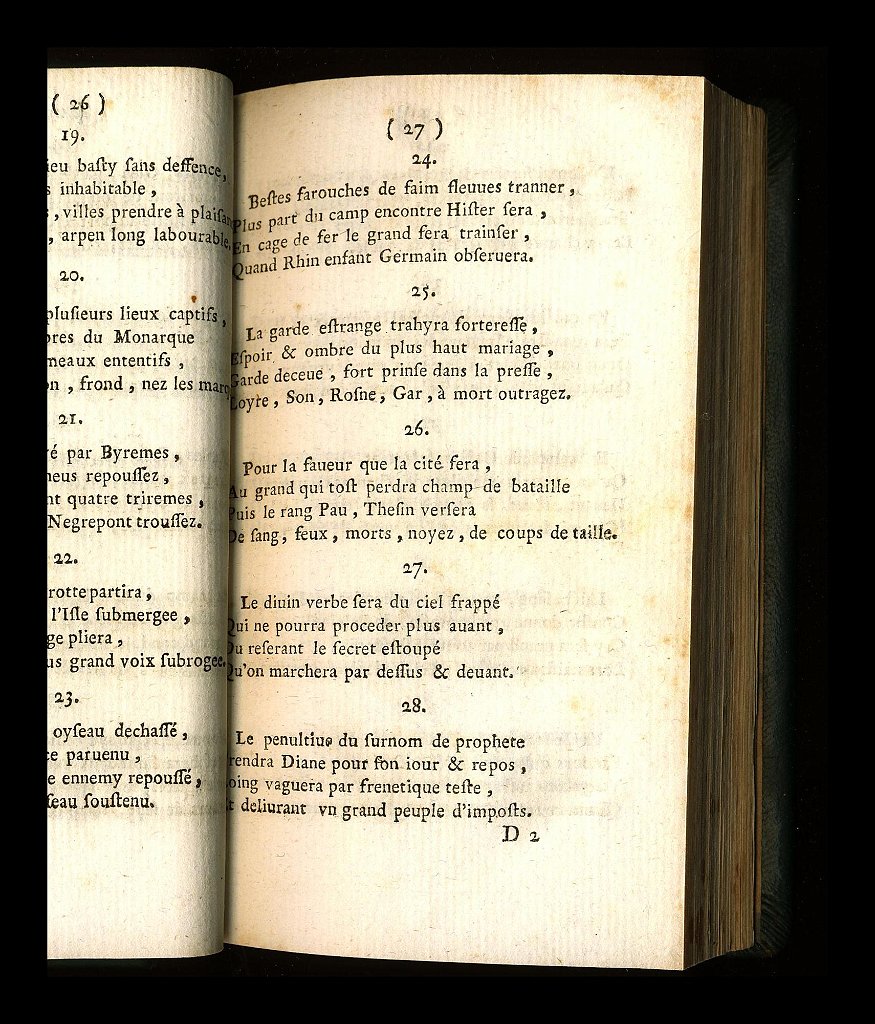 ( 26 )
19.
ieu baſty ſans deffence,
s inhabitable ,
s , villes prendre à plaiſan
, arpen long labourable,
20.
pluſieurs lieux captifs ,
pres du Monarque
meaux ententifs ,
on , frond , nez les marq
21.
ré par Byremes ,
neus repouſſez ,
nt quatre triremes ,
Negrepont trouſſez.
22.
rotte partira ,
l'Iſle ſubmergee ,
ge pliera ,
us grand voix ſubrogee.
23.
oyſeau dechaſſé ,
ce paruenu ,
e ennemy repouſſé ,
ſeau ſouſtenu.
( 27 )
24.
Beſtes farouches de faim fleuues tranner ,
Plus part du camp encontre Hiſter ſera ,
En cage de fer le grand fera trainſer ,
Quand Rhin enfant Germain obſeruera.
25.
La garde eſtrange trahyra fortereſſe ,
Eſpoir & ombre du plus haut mariage ,
Garde deceue , fort prinſe dans la preſſe ,
Loyre , Son , Roſne , Gar , à mort outragez.
26.
Pour la faueur que la cité fera ,
Au grand qui toſt perdra champ de bataille
Puis le rang Pau , Theſin verſera
De ſang , feux , morts , noyez , de coups de taille.
27.
Le diuin verbe ſera du ciel frappé
Qui ne pourra proceder plus auant ,
Du reſerant le ſecret eſtoupé
Qu'on marchera par deſſus & deuant.
28.
Le penultiue du ſurnom de prophete
rendra Diane pour ſon iour & repos ,
oing vaguera par frenetique teſte ,
t deliurant vn grand peuple d'impoſts.
D 2